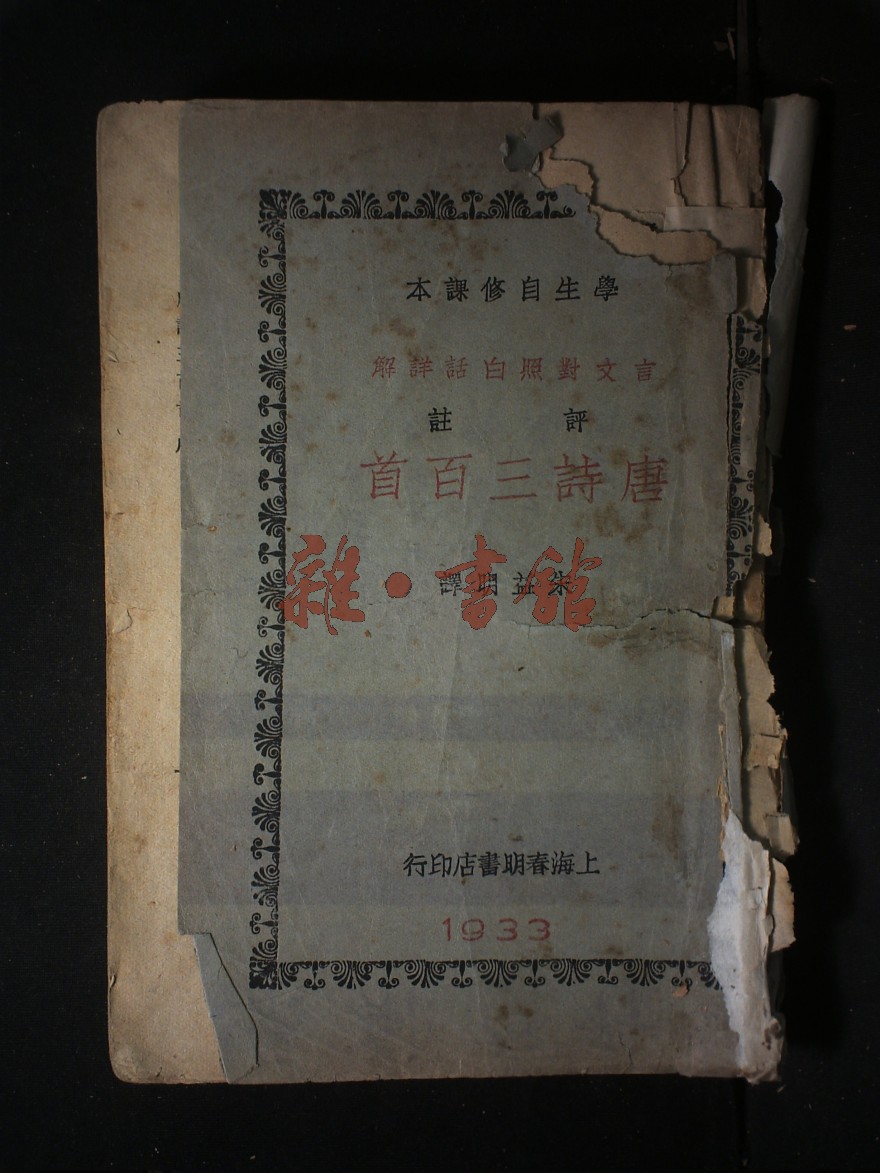 學生自修課本
言文對照白話詳解
評註
唐詩三百首
朱益明譯
雜·書館
上海春明書店印行
1933